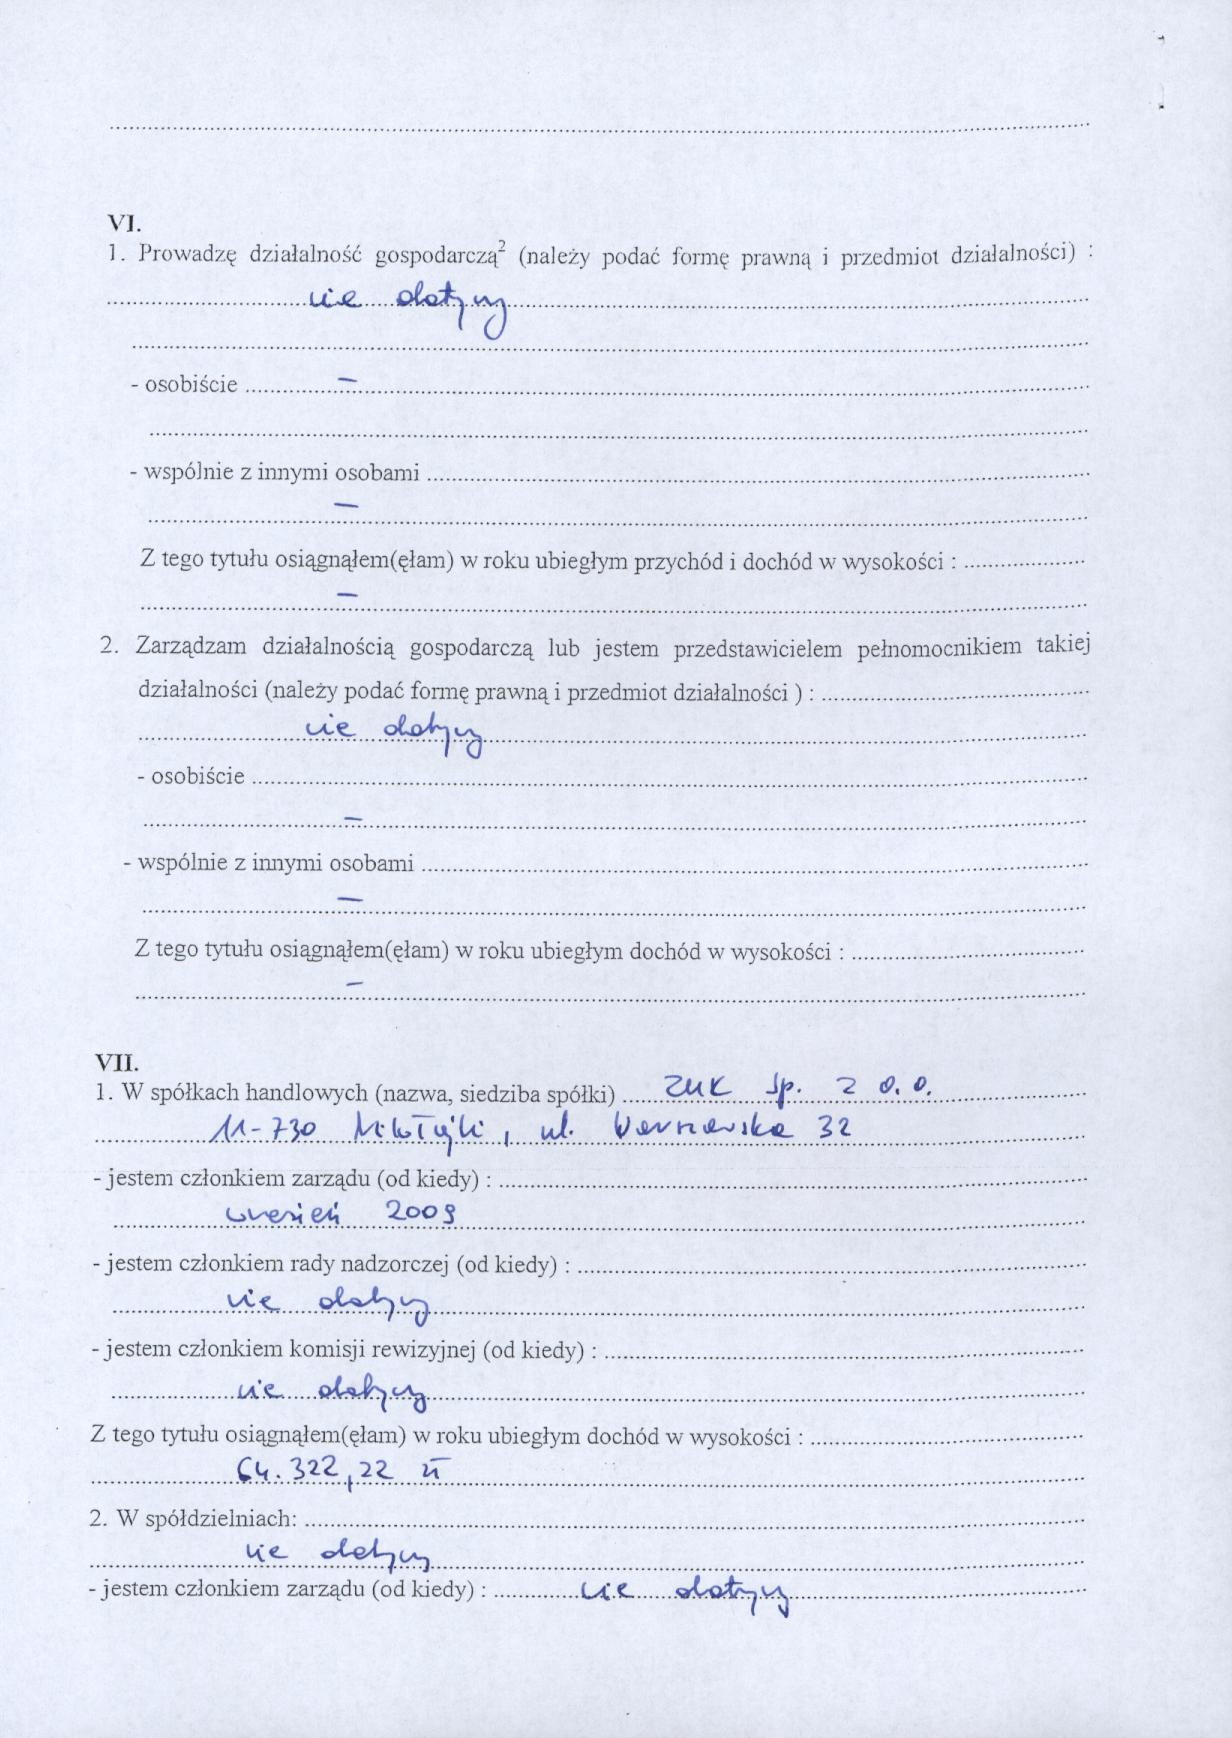 VI.
1. Prowadzę działalność gospodarczą² (należy podać formę prawną i przedmiot działalności) :
nie dotyczy
- osobiście –
- wspólnie z innymi osobami
–
Z tego tytułu osiągnąłem(ęłam) w roku ubiegłym przychód i dochód w wysokości :
–
2. Zarządzam działalnością gospodarczą lub jestem przedstawicielem pełnomocnikiem takiej
działalności (należy podać formę prawną i przedmiot działalności ) :
nie dotyczy
- osobiście
–
- wspólnie z innymi osobami
–
Z tego tytułu osiągnąłem(ęłam) w roku ubiegłym dochód w wysokości :
–
VII.
1. W spółkach handlowych (nazwa, siedziba spółki) ZUK Sp. z o.o.
11-730 Mikołajki, ul. Warszawska 32
- jestem członkiem zarządu (od kiedy) :
wrzesień 2009
- jestem członkiem rady nadzorczej (od kiedy) :
nie dotyczy
- jestem członkiem komisji rewizyjnej (od kiedy) :
nie dotyczy
Z tego tytułu osiągnąłem(ęłam) w roku ubiegłym dochód w wysokości :
64.322,22 zł
2. W spółdzielniach:
nie dotyczy
- jestem członkiem zarządu (od kiedy) : nie dotyczy